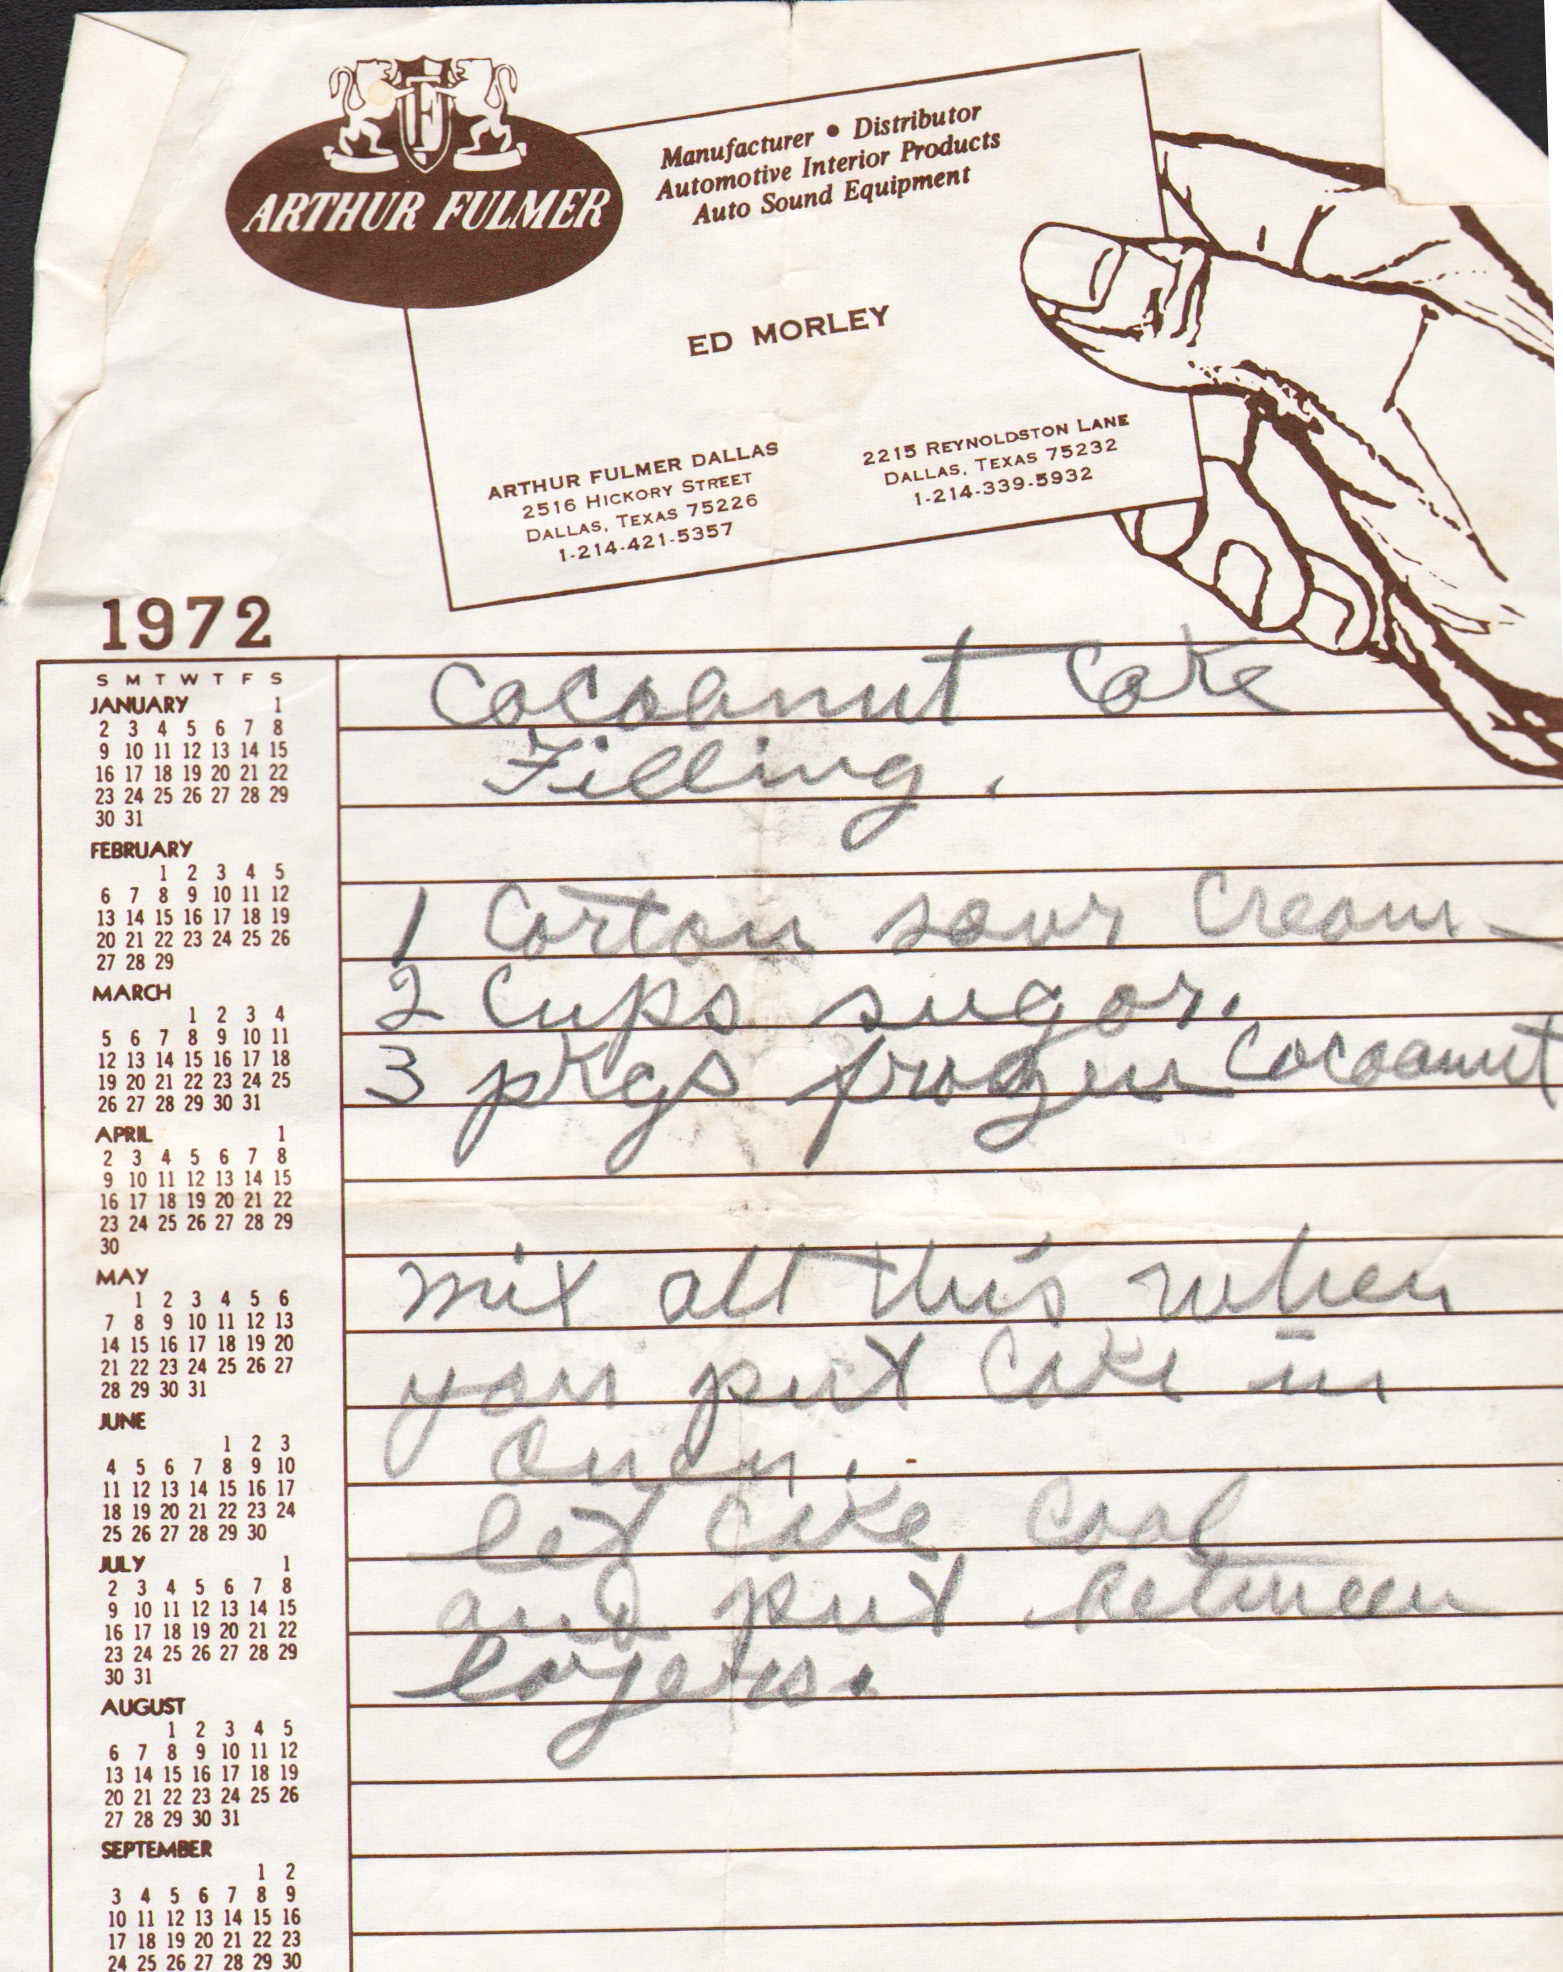 ARTHUR FULMER
Manufacturer • Distributor
Automotive Interior Products
Auto Sound Equipment
ED MORLEY
ARTHUR FULMER DALLAS
2516 HICKORY STREET
DALLAS, TEXAS 75226
1-214-421-5357
2215 REYNOLDSTON LANE
DALLAS, TEXAS 75232
1-214-339-5932
1972
S M T W T F S
JANUARY 1
2 3 4 5 6 7 8
9 10 11 12 13 14 15
16 17 18 19 20 21 22
23 24 25 26 27 28 29
30 31
FEBRUARY
1 2 3 4 5
6 7 8 9 10 11 12
13 14 15 16 17 18 19
20 21 22 23 24 25 26
27 28 29
MARCH
1 2 3 4
5 6 7 8 9 10 11
12 13 14 15 16 17 18
19 20 21 22 23 24 25
26 27 28 29 30 31
APRIL 1
2 3 4 5 6 7 8
9 10 11 12 13 14 15
16 17 18 19 20 21 22
23 24 25 26 27 28 29
30
MAY
1 2 3 4 5 6
7 8 9 10 11 12 13
14 15 16 17 18 19 20
21 22 23 24 25 26 27
28 29 30 31
JUNE
1 2 3
4 5 6 7 8 9 10
11 12 13 14 15 16 17
18 19 20 21 22 23 24
25 26 27 28 29 30
JULY 1
2 3 4 5 6 7 8
9 10 11 12 13 14 15
16 17 18 19 20 21 22
23 24 25 26 27 28 29
30 31
AUGUST
1 2 3 4 5
6 7 8 9 10 11 12
13 14 15 16 17 18 19
20 21 22 23 24 25 26
27 28 29 30 31
SEPTEMBER
1 2
3 4 5 6 7 8 9
10 11 12 13 14 15 16
17 18 19 20 21 22 23
24 25 26 27 28 29 30
Cocoanut Cake
Filling.
1 Carton sour Cream
2 Cups sugar.
3 pkgs frozen Cocoanut
mix all this when
you put Cake in
Oven.
let Cake Cool
and put between
layers.